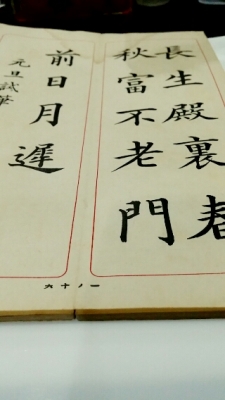 長生殿裏春
秋富不老門
前日月遲
元旦試筆
一ノ十六